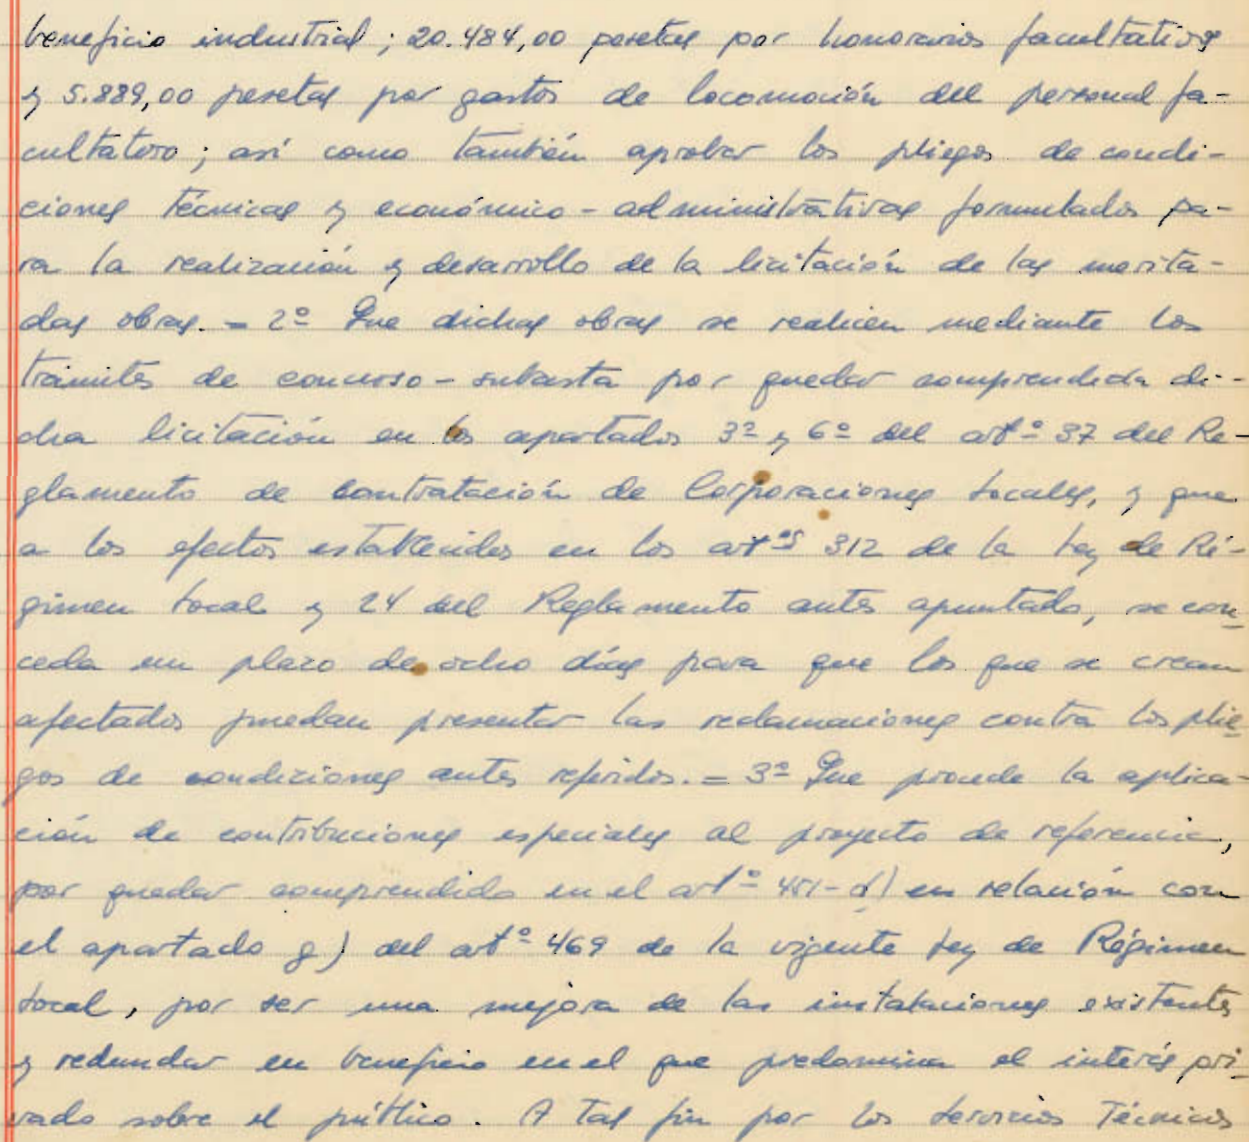 beneficio industrial; 20.484,00 pesetas por honorarios facultativos
y 5.889,00 pesetas por gastos de locomoción del personal fa-
cultativo; así como también aprobar los pliegos de condi-
ciones técnicas y económico-administrativas formulados pa-
ra la realización y desarrollo de la licitación de las merita-
das obras. = 2º Que dichas obras se realicen mediante los
trámites de concurso-subasta por quedar comprendida di-
cha licitación en los apartados 3º y 6º del artº 37 del Re-
glamento de Contratación de Corporaciones Locales, y que
a los efectos establecidos en los artºs 312 de la Ley de Ré-
gimen Local y 24 del Reglamento antes apuntado, se con-
ceda un plazo de ocho días para que los que se crean
afectados puedan presentar las reclamaciones contra los plie-
gos de condiciones antes referidos. = 3º Que procede la aplica-
ción de contribuciones especiales al proyecto de referencia,
por quedar comprendido en el artº 451- en relación con
el apartado g) del artº 469 de la vigente Ley de Régimen
Local, por ser una mejora de las instalaciones existentes
y redundar en beneficio en el que predomina el interés pri-
vado sobre el público. A tal fin por los Servicios Técnicos